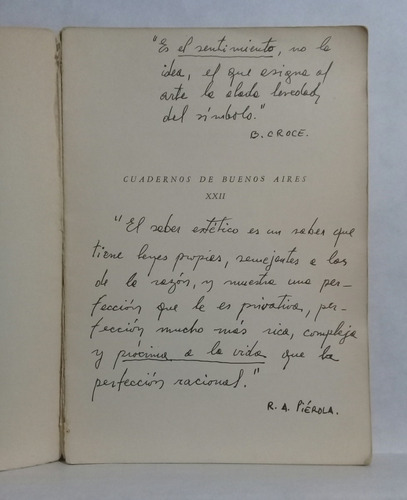 "Es el sentimiento, no la
idea, el que asigna al
arte la alada levedad
del símbolo."
B. CROCE.
CUADERNOS DE BUENOS AIRES
XXII
"El saber estético es un saber que
tiene leyes propias, semejantes a las
de la razón, y muestra una per-
fección que le es privativa, per-
fección mucho más rica, compleja
y próxima a la vida que la
perfección racional."
R. A. PIÉROLA.